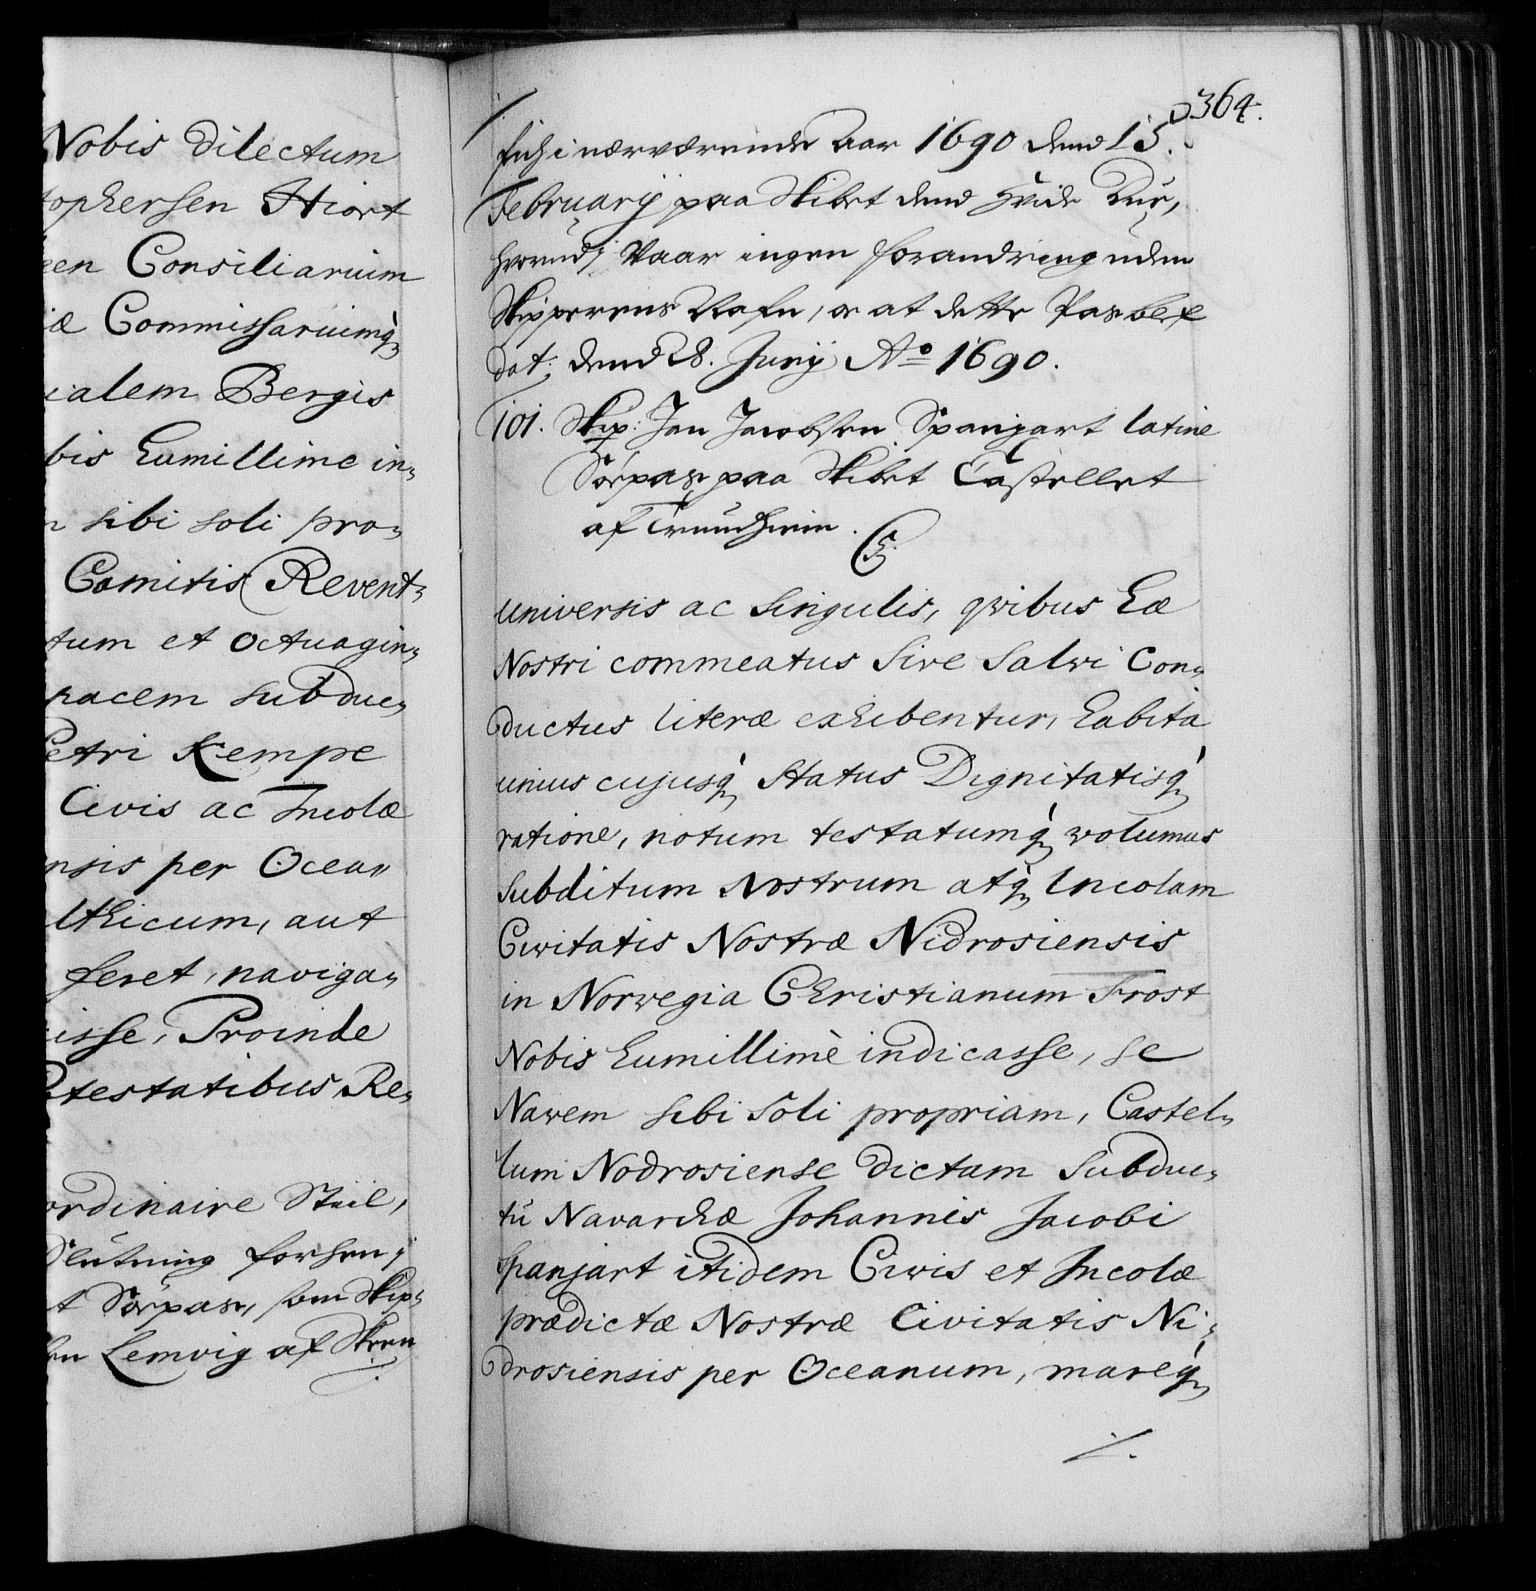 Nobis dilectum
tophersen Hiort
een Consiliarium
iæ Commissariumq,
ialem Bergis
bis humillime in„
n sibi soli pro„
Comitis Revent„
tum et octuagin„
pacem subduc„
Petri Kempe
Civis ac Incolæ
nsis per Ocea„
lthicum, aut
feret, naviga„
isse, Proinde
otestatibus Re„
ordinaire Stiil,
Slutning forsen;
t Söepas, som Skip„
en Lemvig af Skeen
364.
fich i nærværende Aar 1690 dend 15.
February paa Skibet dend Hvide Due,
hvorudj Vaar ingen forandring uden
Skipperens Nafn, og at dette Pas blef
dat: dend 28. Junij Aº 1690.
101. Skip: Jan Jacobsen Spanjart latine
Söepas paa Skibet Castellet
af Trundhiem.
C5.
Universis ac Singulis, qvibus hæ
Nostri commeatus Sive Salvi Con„
ductus literæ exhibentur, habita
unius cujusq, Status Dignitatisq,
ratione, notum testatumq, volumus
Subditum Nostrum atq, Incolam
Civitatis Nostræ Nidrosiensis
in Norvegia Christianum Frost
Nobis humillimè indicasse, se
Navem sibi Soli propriam, Castel„
lum Nodrosiense dictam Subduc„
tu Navarchæ Johannis Jacobi
Spanjart itidem Civis et Incolæ
prædictæ Nostræ Civitatis Ni„
drosiensis per Oceanum, mareq,